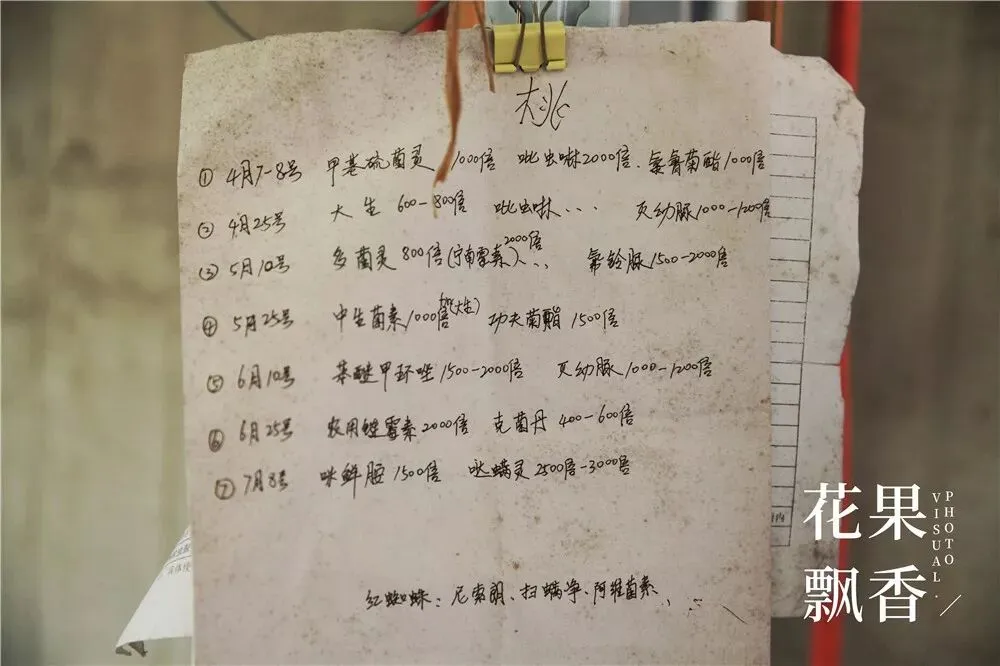 桃
① 4月7-8号 甲基硫菌灵 1000倍 吡虫啉2000倍、氰戊菊酯1000倍
② 4月25号 大生 600-800倍 吡虫啉... 灭幼脲1000-1200倍
③ 5月10号 多菌灵800倍(宁南霉素)2000倍... 氟铃脲1500-2000倍
④ 5月25号 中生菌素1000倍(大生) 功夫菊酯 1500倍
⑤ 6月10号 苯醚甲环唑1500-2000倍 灭幼脲1000-1200倍
⑥ 6月25号 农用链霉素2000倍 克菌丹 400-600倍
⑦ 7月8号 咪鲜胺1500倍 哒螨灵2500倍-3000倍
红蜘蛛：尼索朗、扫螨净、阿维菌素...
花果
飘香
VISUAL.
PHOTO